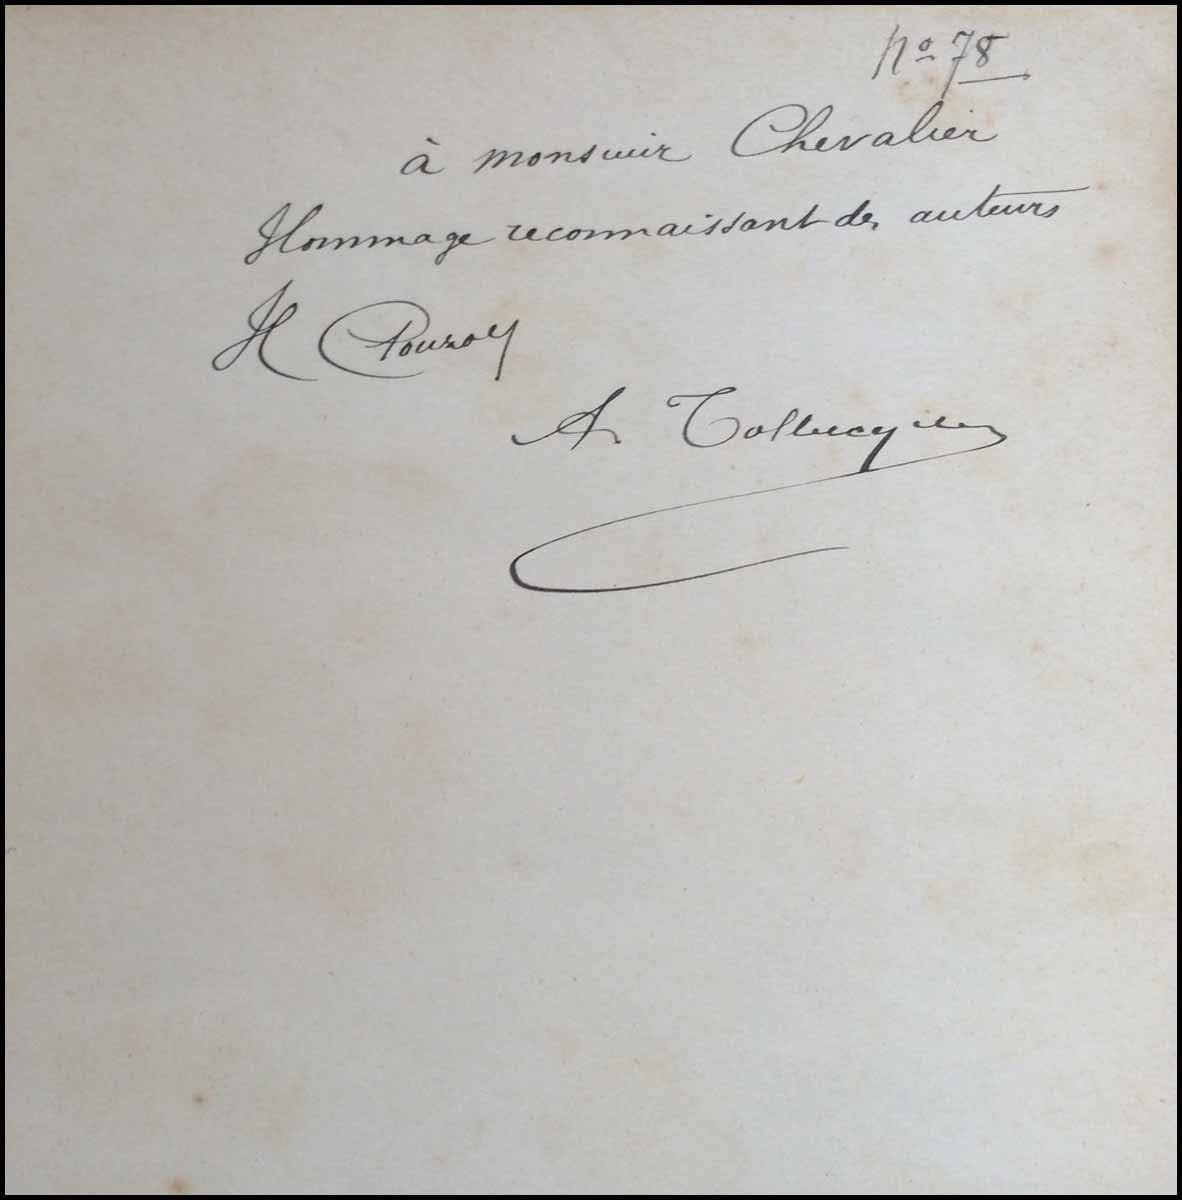 nº 78
à monsieur Chevalier
Hommage reconnaissant des auteurs
H Pouzol
A